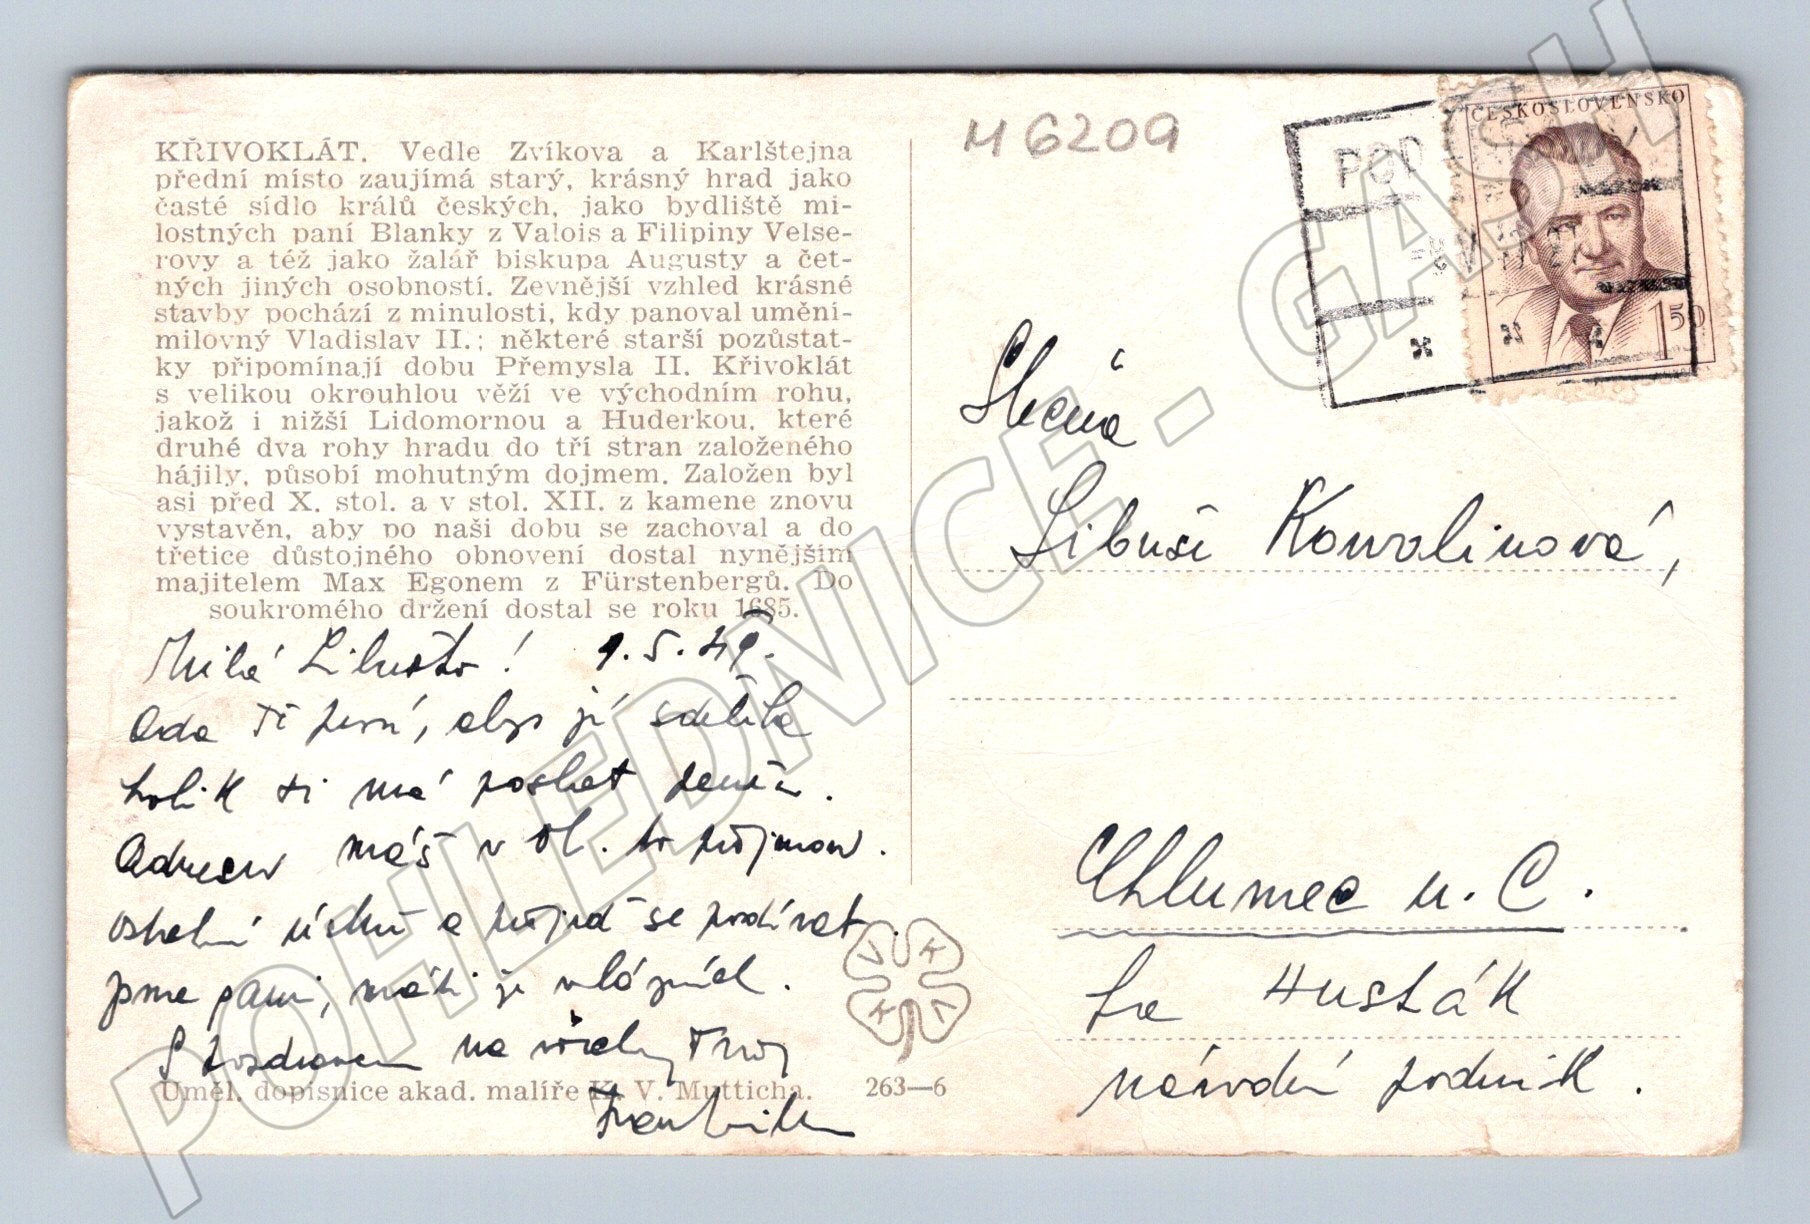 M 6209
ČESKOSLOVENSKO
1.50
KŘIVOKLÁT. Vedle Zvíkova a Karlštejna
přední místo zaujímá starý, krásný hrad jako
časté sídlo králů českých, jako bydliště mi-
lostných paní Blanky z Valois a Filipiny Velse-
rovy a též jako žalář biskupa Augusty a čet-
ných jiných osobností. Zevnější vzhled krásné
stavby pochází z minulosti, kdy panoval umění-
milovný Vladislav II.; některé starší pozůstat-
ky připomínají dobu Přemysla II. Křivoklát
s velikou okrouhlou věží ve východním rohu,
jakož i nižší Lidomornou a Huderkou, které
druhé dva rohy hradu do tří stran založeného
hájily, působí mohutným dojmem. Založen byl
asi před X. stol. a v stol. XII. z kamene znovu
vystavěn, aby po naši dobu se zachoval a do
třetice důstojného obnovení dostal nynějším
majitelem Max Egonem z Fürstenbergů. Do
soukromého držení dostal se roku 1685.
Milá Libuško! 9.5.49.
Ada Tě prosí, abys jí sdělila
kolik ti má poslat peněz.
Adresu máš v
se podívat
je v lázních.
S pozdravem na všechny Tvůj
Uměl. dopisnice akad. malíře K. V. Mutticha. 263—6
V K K V
Slečna
Libuši Kowolinová,
Chlumec n. C.
fa Husták
národní podnik.
POHLEDNICE - GASH